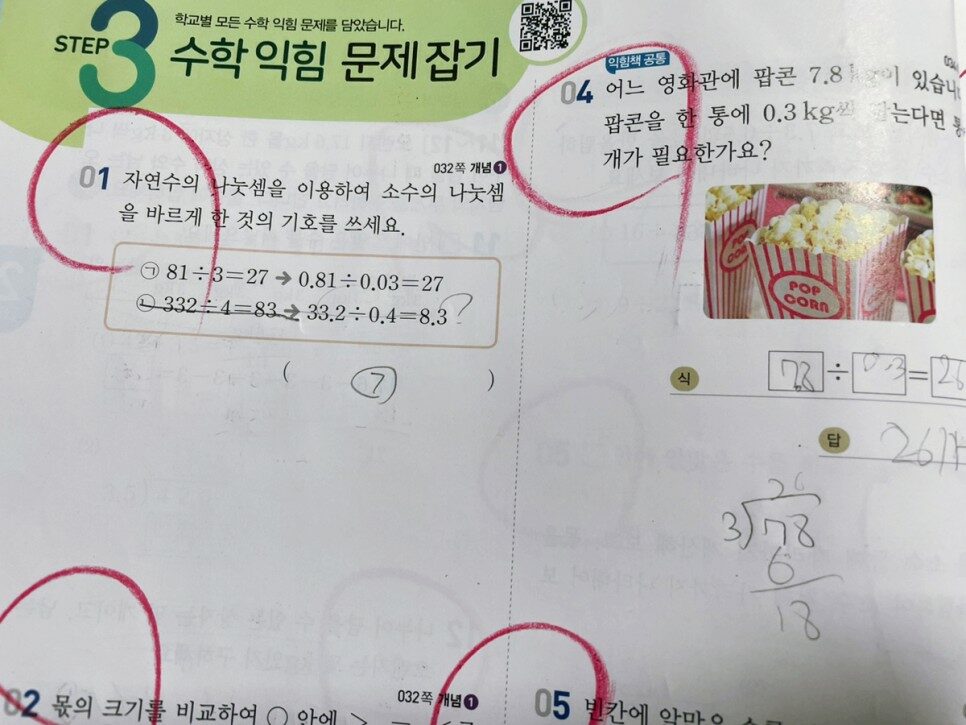 학교별 모든 수학 익힘 문제를 담았습니다.
STEP 3 수학 익힘 문제 잡기
032쪽 개념 1
01 자연수의 나눗셈을 이용하여 소수의 나눗셈
을 바르게 한 것의 기호를 쓰세요.
㉠ 81÷3=27 → 0.81÷0.03=27
㉡ 332÷4=83 → 33.2÷0.4=8.3 ?
( ㉠ )
032쪽 개념 1
02 몫의 크기를 비교하여 ○ 안에
익힘책 공통
04 어느 영화관에 팝콘 7.8 있습니
팝콘을 한 통에 0.3 kg씩 담는다면
개가 필요한가요?
POP CORN
식 7.8 ÷ 0.3 = 26
답 26개
26
3)78
6
18
05 빈칸에 알맞은